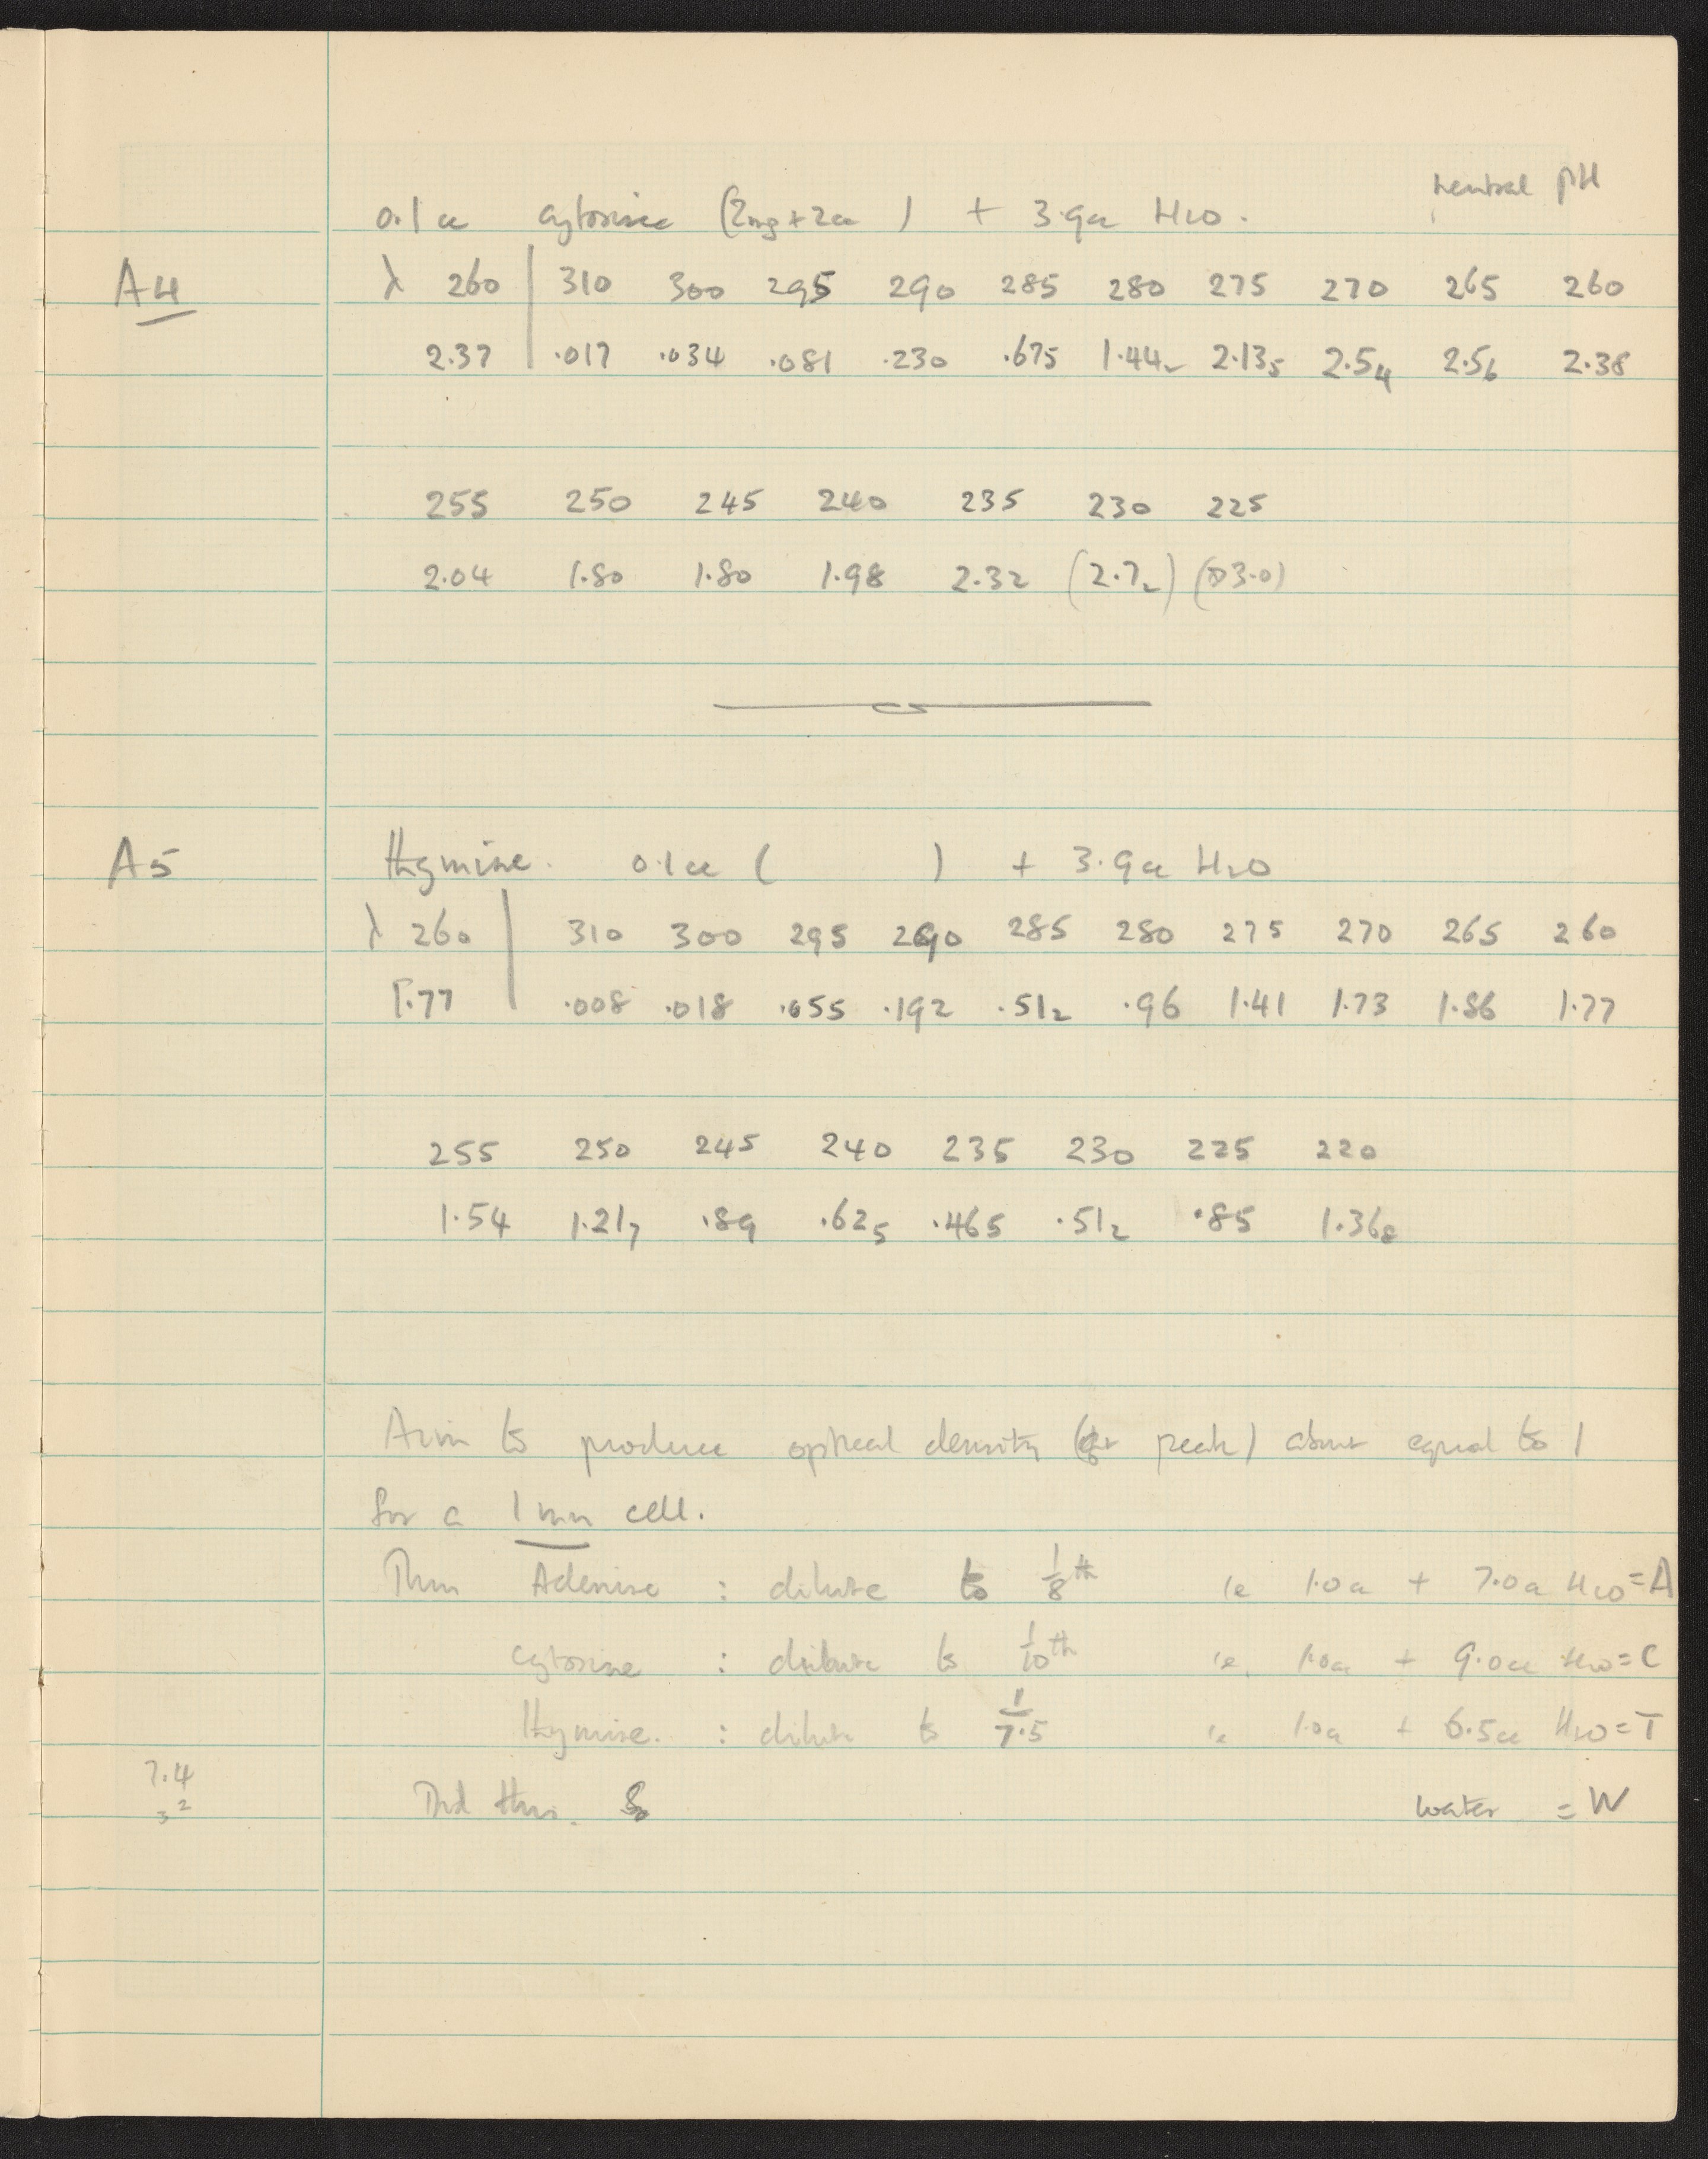 neutral pH
0.1 cc cytosine (2mg + 2cc ) + 3.9cc H2O.
A4 λ 260 | 310 300 295 290 285 280 275 270 265 260
2.37 | .017 .034 .081 .230 .675 1.442 2.135 2.54 2.56 2.38
255 250 245 240 235 230 225
2.04 1.80 1.80 1.98 2.32 (2.72) (>3.0)
A5 Thymine. 0.1cc ( ) + 3.9cc H2O
λ 260 | 310 300 295 290 285 280 275 270 265 260
1.77 | .008 .018 .055 .192 .512 .96 1.41 1.73 1.86 1.77
255 250 245 240 235 230 225 220
1.54 1.217 .89 .625 .465 .512 .85 1.368
Aim to produce optical density (at peak) about equal to 1
for a 1 mm cell.
Thus Adenine : dilute to 1/8th ie 1.0cc + 7.0cc H2O = A
Cytosine : dilute to 1/10th ie 1.0cc + 9.0cc H2O = C
Thymine. : dilute to 1/7.5 ie 1.0cc + 6.5cc H2O = T
7.4 Did this. water = W
3 2